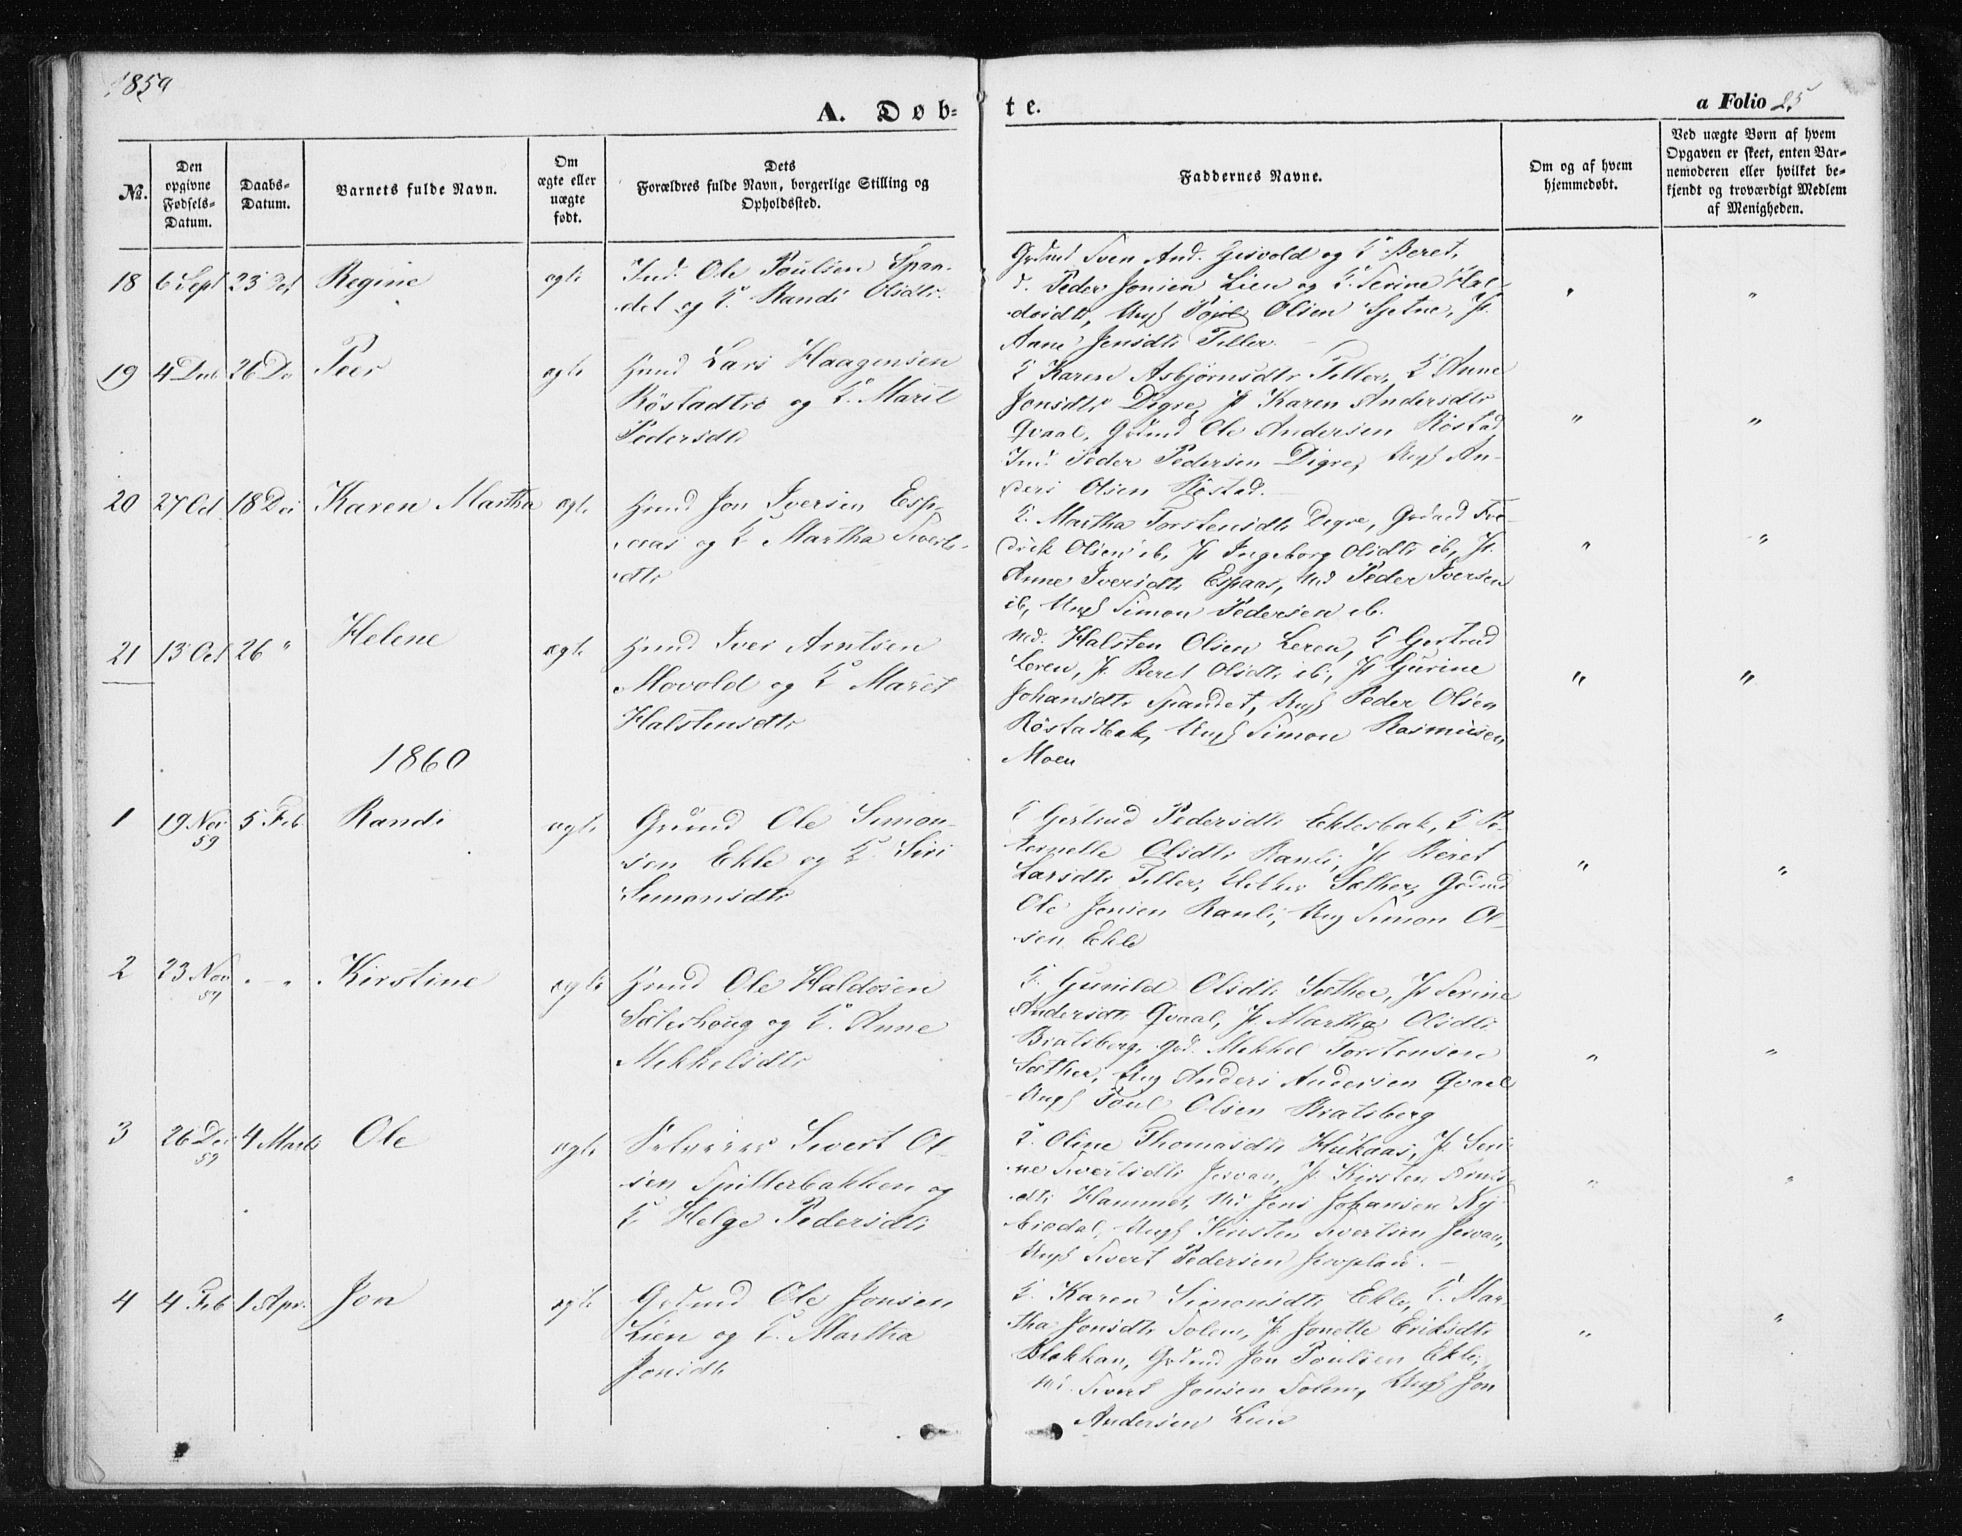 1859
A. Døb-
te.
a Folio 25
No.
Den
opgivne
Fødsels-
Datum.
Daabs-
Datum.
Barnets fulde Navn.
Om
ægte eller
uægte
født.
Dets
Forældres fulde Navn, borgerlige Stilling og
Opholdssted.
Faddernes Navne.
Om og af hvem
hjemmedøbt.
Ved uægte Børn af hvem
Opgaven er skeet, enten Bar-
nemoderen eller hvilket be-
kjendt og troværdigt Medlem
af Menigheden.
18 6 Sept 23 Oct Regine ægte
Ind. Ole Poulsen Span-
det og K. Randi Olsdtr.
Grdmd Sven And. Gisvold og K Beret,
d. Peder Jonsen Lien og K. Serine Hal-
dosdtr, Ungk Olsen Sjetne, P.
Aane Jensdtr Tiller.
19 4 Dec 26 Do Peer ægte
Hmd Lars Haagensen
Röstadtrø og K. Marit
Pedersdtr
K Karen Asbjørnsdtr Tiller, K Anne
Jonsdtr Digre, P Karen Andersdtr
Qvaal, Grdmd Ole Andersen Röstad
Ind. Peder Pedersen Digre, Ungk An-
ders Olsen Röstad.
20 27 Oct 18 Dec Karen Martha ægte
Hmd Jon Iversen Esp-
aas og K Martha Siverts-
dtr
K. Martha Torstensdtr Digre, Grdmd Fre-
drik Olsen ib, P Ingeborg Olsdtr ib, P.
Anne Iversdtr Espaas, Peder Iversen
ib, Ungk Simon Pedersen ib.
21 13 Oct 26 " Helene ægte
Hmd Iver Arntsen
Movold og K Marit
Halstensdtr
Md. Halsten Olsen Leren, K Gjertrud
Leren, P. Beret Olsdtr ib, P Gurine
Johansdtr Spandet, Ungk Peder Olsen
Röstadbak, Ungk Simon Rasmusen
Moen
1860
1 19 Nov 59 5 Feb. Randi ægte
Grdmd Ole Simon-
sen Ekle og K. Siri
Simonsdtr
K Gjertrud Pedersdtr Eklesbak, K Pe-
ternelle Olsdtr Ranli, P Beret
Larsdtr Tiller, Sæther, Grdmd
Ole Jonsen Ranli, Ung Simon Ol-
sen Ekle
2 23 Nov 59 " - " Kirstine ægte
Hmd Ole Haldosen
Sæterhoug og K. Anne
Mekkelsdtr
K. Gunild Olsdtr Sæther, P Serine
Andersdtr Qvaal, P. Martha Olsdtr
Bratsberg, Grd. Mekkel Torstensen
Sæther, Ung Anders Andersen Qvaal
Ungk Poul Olsen Bratsberg
3 26 Dec 59 4 Marts Ole ægte
Selveier Sivert Ol-
sen Spillerbakken og
K Helge Pedersdtr
K. Oline Thomasdtr Hukaas, P. Seri-
ne Sivertsdtr Jesvan, P. Kirsten
dtr Hammer, Md Jens Johansen Ny-
brødal, Ungk Kirsten Sivertsen Jesvan,
Ungk Sivert Pedersen
4 4 Feb 1 Apr. Jon ægte
Grdmd Ole Jonsen
Lien og K. Martha
Jonsdtr
K. Karen Simonsdtr Ekle, K. Mar-
tha Jonsdtr Solem, P. Jonette Eriksdtr
Blakkan, Grdmd Jon Poulsen Ekle,
Md. Sivert Jonsen Solem, Ungk Jon
Andersen Lien